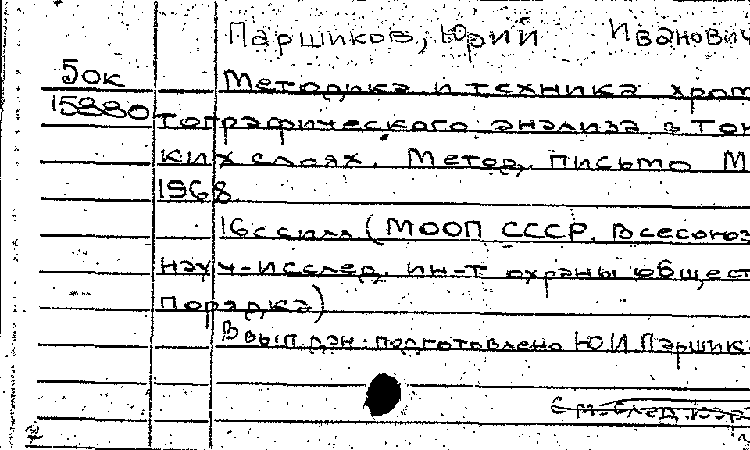 Паршиков, Юрий Иванович
50к
15880
Методика и техника хром
тографического анализа в тон
ких слоях. Метод. письмо М
1968
16с с илл (МООП СССР. Всесоюз
науч-исслед. ин-т охраны общест
порядка)
В вып. дан. подготовлено Ю.И. Паршик
См. след. кар